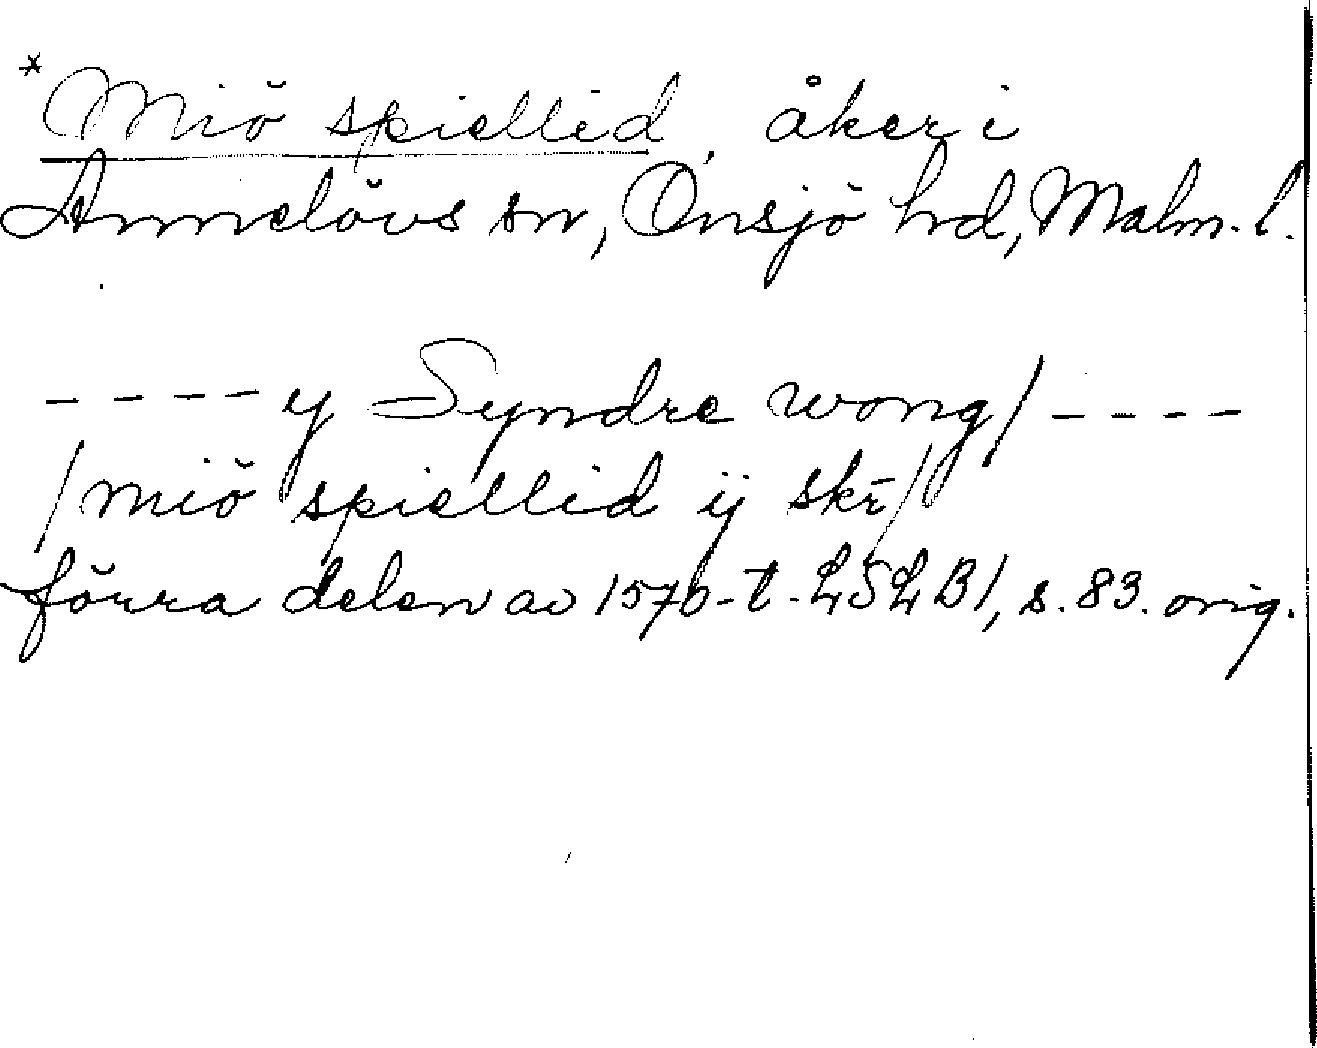 *Miö spiellid, åker i
Annelövs sn, Onsjö hd, Malm. l.
---- y Syndre wong/ ----
/miö spiellid ij skr/
förra delen av 1570-t. LSLB1, s. 83. orig.